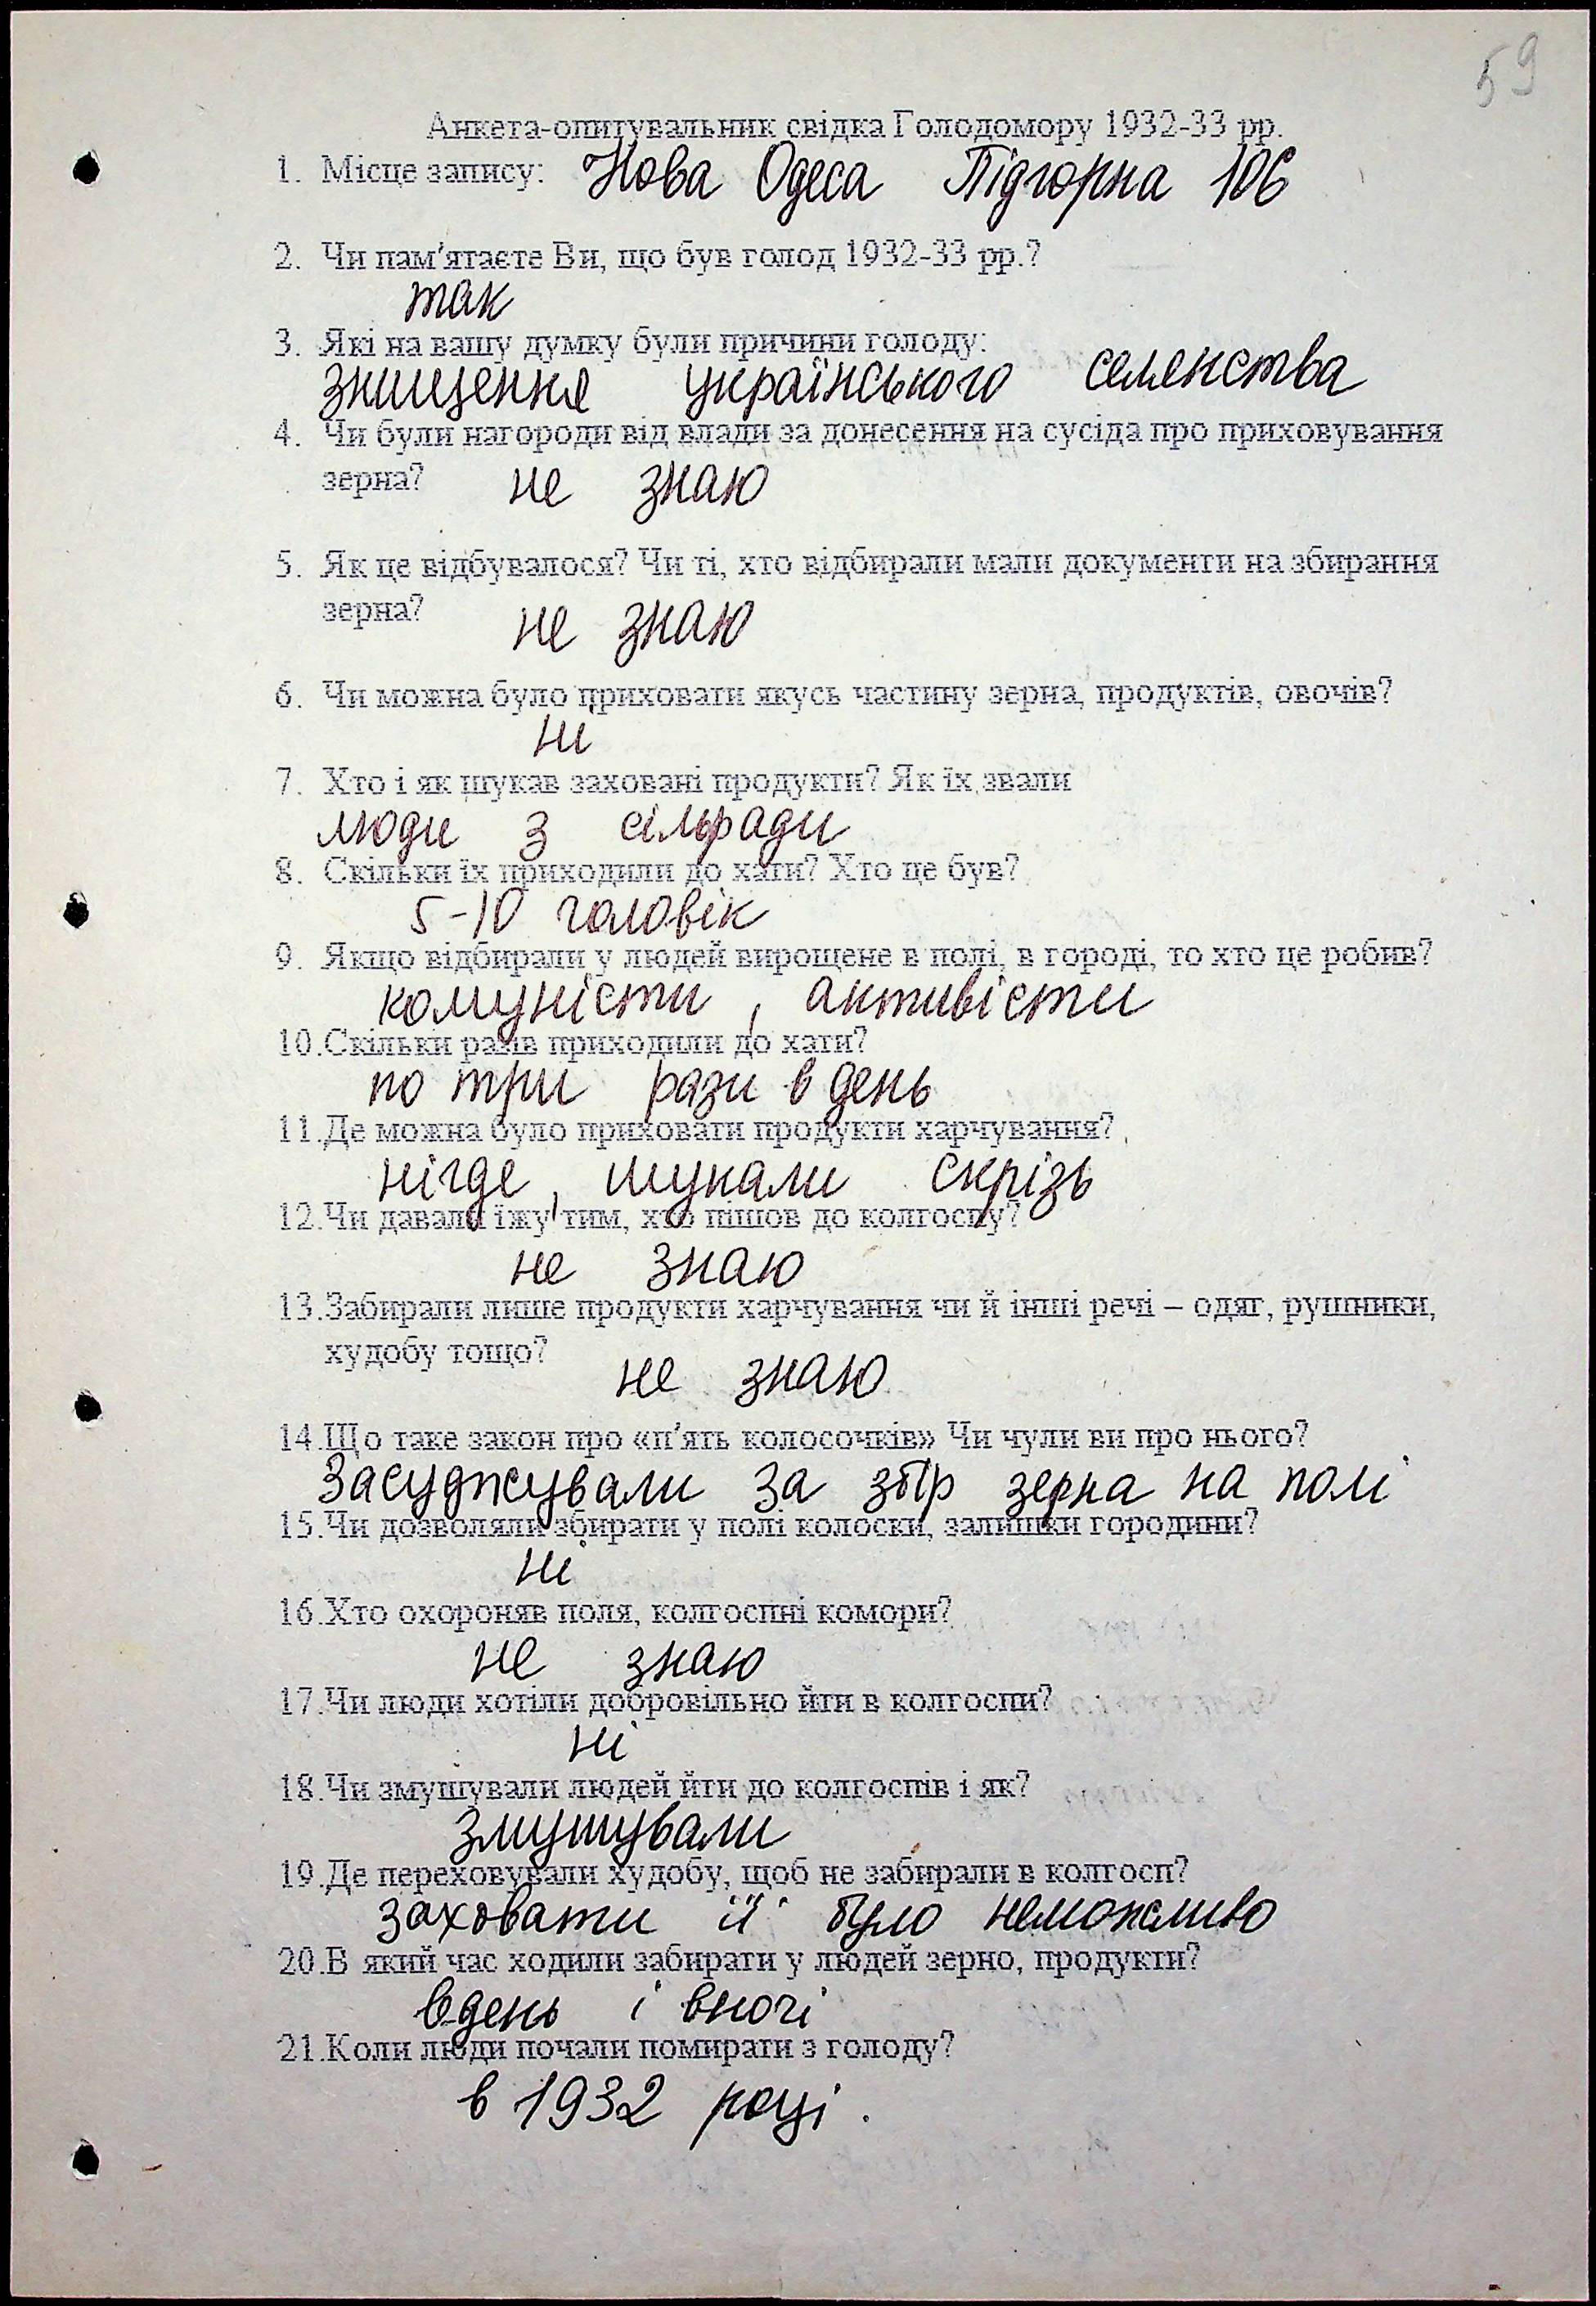 59
Анкета-опитувальник свідка Голодомору 1932-33 рр.
1. Місце запису: Нова Одеса Підгорна 106
2. Чи пам'ятаєте Ви, що був голод 1932-33 рр.?
так
3. Які на вашу думку були причини голоду:
знищення українського селянства
4. Чи були нагороди від влади за донесення на сусіда про приховування
зерна? не знаю
5. Як це відбувалося? Чи ті, хто відбирали мали документи на збирання
зерна? не знаю
6. Чи можна було приховати якусь частину зерна, продуктів, овочів?
ні
7. Хто і як шукав заховані продукти? Як їх звали
люди з сільради
8. Скільки їх приходили до хати? Хто це був?
5-10 чоловік
9. Якщо відбирали у людей вирощене в полі, в городі, то хто це робив?
комуністи, активісти
10.Скільки разів приходили до хати?
по три рази в день
11.Де можна було приховати продукти харчування?
нігде, шукали скрізь
12.Чи давали їжу тим, хто пішов до колгоспу?
не знаю
13.Забирали лише продукти харчування чи й інші речі – одяг, рушники,
худобу тощо? не знаю
14.Що таке закон про «п'ять колосочків» Чи чули ви про нього?
Засуджували за збір зерна на полі
15.Чи дозволяли збирати у полі колоски, залишки городини?
ні
16.Хто охороняв поля, колгоспні комори?
не знаю
17.Чи люди хотіли добровільно йти в колгоспи?
ні
18.Чи змушували людей йти до колгоспів і як?
змушували
19.Де переховували худобу, щоб не забирали в колгосп?
заховати її було неможливо
20.В який час ходили забирати у людей зерно, продукти?
вдень і вночі
21.Коли люди почали помирати з голоду?
в 1932 році.